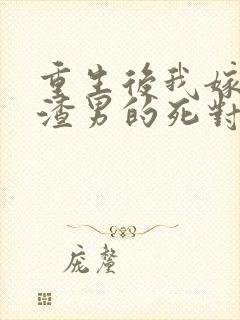 重生後我嫁
渣男的死對
龐釐